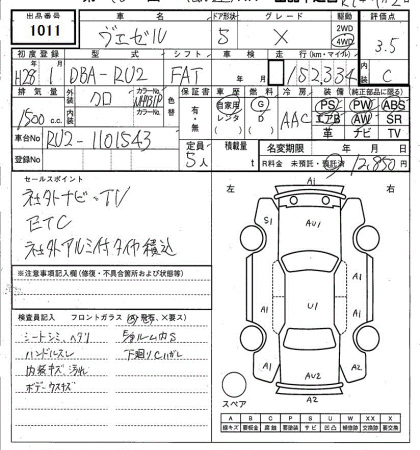 出品番号 車名 ドア形状 グレード 駆動 評価点
1011 ヴェゼル 5 X 2WD 4WD 3.5
初度登録 型式 シフト 車検 走行(km・マイル) 内装
H28年1月 DBA-RU2 FAT 年 月 152,334 C
排気量 外装 クロ カラーNo. 色替 保証書 車歴 燃料 冷房 装備 (純正部品に限る)
1500 c.c. 内装 カラーNo. 有・無 自家用 レンタ G D AAC PS PW ABS
エアB AW SR
革 ナビ TV
車台No RU2-1101543 定員 5人 積載量 t 名変期限 年 月 日
登録No R料金 未預託・預託済 12,850 円
セールスポイント
社外ナビ・TV
ETC
社外アルミ付タイヤ積込
※注意事項記入欄(修復・不具合箇所および状態等)
検査員記入 フロントガラス
シートシミ、ヘタリ ルーム内S
ハンドルスレ 下廻りCハガレ
内装キズ、汚れ
ボデーウスキズ
左 右
A1
S1 AU1
A1 U1 A1 A1
A1 AU2 A1
A2 A2
スペア
A B C P S U W X XX
線キズ 要板金 腐蝕 要塗装 サビ 凹凸 補修跡 要交換 交換跡